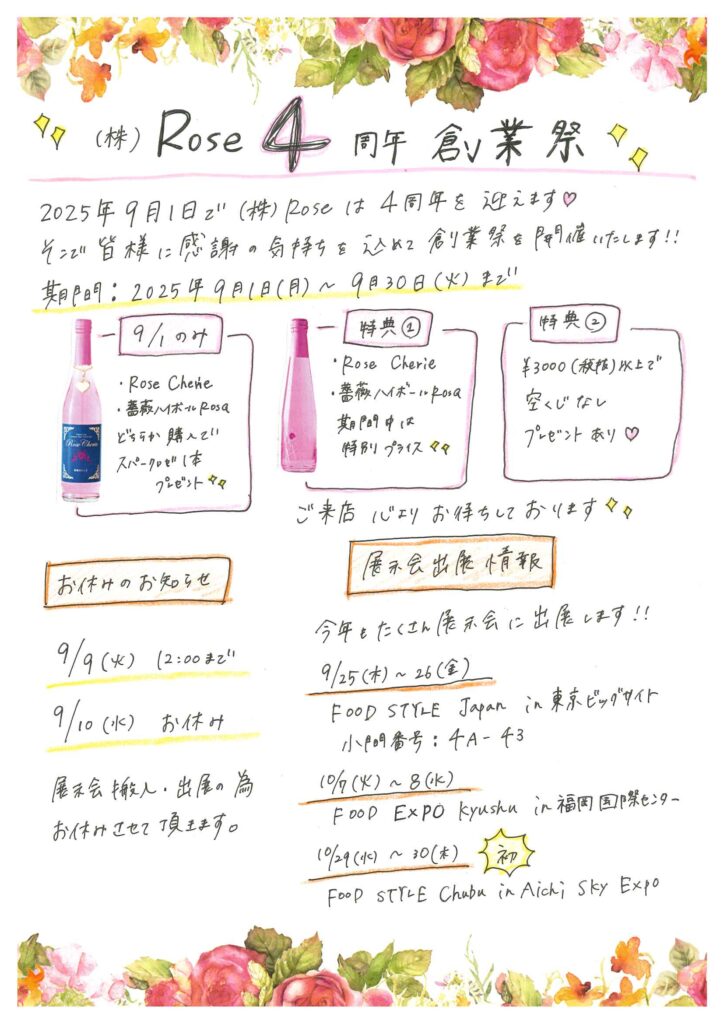 (株) Rose 4周年 創業祭
2025年9月1日で(株)Roseは4周年を迎えます♡
そこで皆様に感謝の気持ちを込めて創業祭を開催いたします!!
期間：2025年9月1日(月)～9月30日(火)まで
9/1のみ
・Rose Cherie
・薔薇ハイボールRosa
どちらか購入で
スパークロゼ1本
プレゼント
特典①
・Rose Cherie
・薔薇ハイボールRosa
期間中は
特別プライス
特典②
¥3000(税抜)以上で
空くじなし
プレゼントあり♡
Rose Cherie
ご来店心よりお待ちしております
お休みのお知らせ
9/9(火) 12:00まで
9/10(水) お休み
展示会搬入・出展の為
お休みさせて頂きます。
展示会出展情報
今年もたくさん展示会に出展します!!
9/25(木)～26(金)
FOOD STYLE Japan in 東京ビッグサイト
小間番号：4A-43
10/7(火)～8(水)
FOOD EXPO Kyushu in 福岡国際センター
10/29(水)～30(木) 初
FOOD STYLE Chubu in Aichi Sky Expo